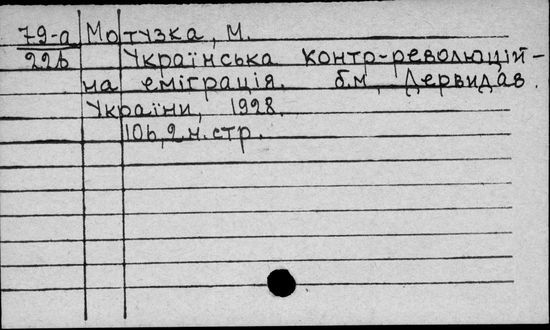 79-а Мотузка, М.
226 Українська контр-революцій-
на еміграція. б.м, Держвидав.
України, 1928.
106, 2 н. стр.